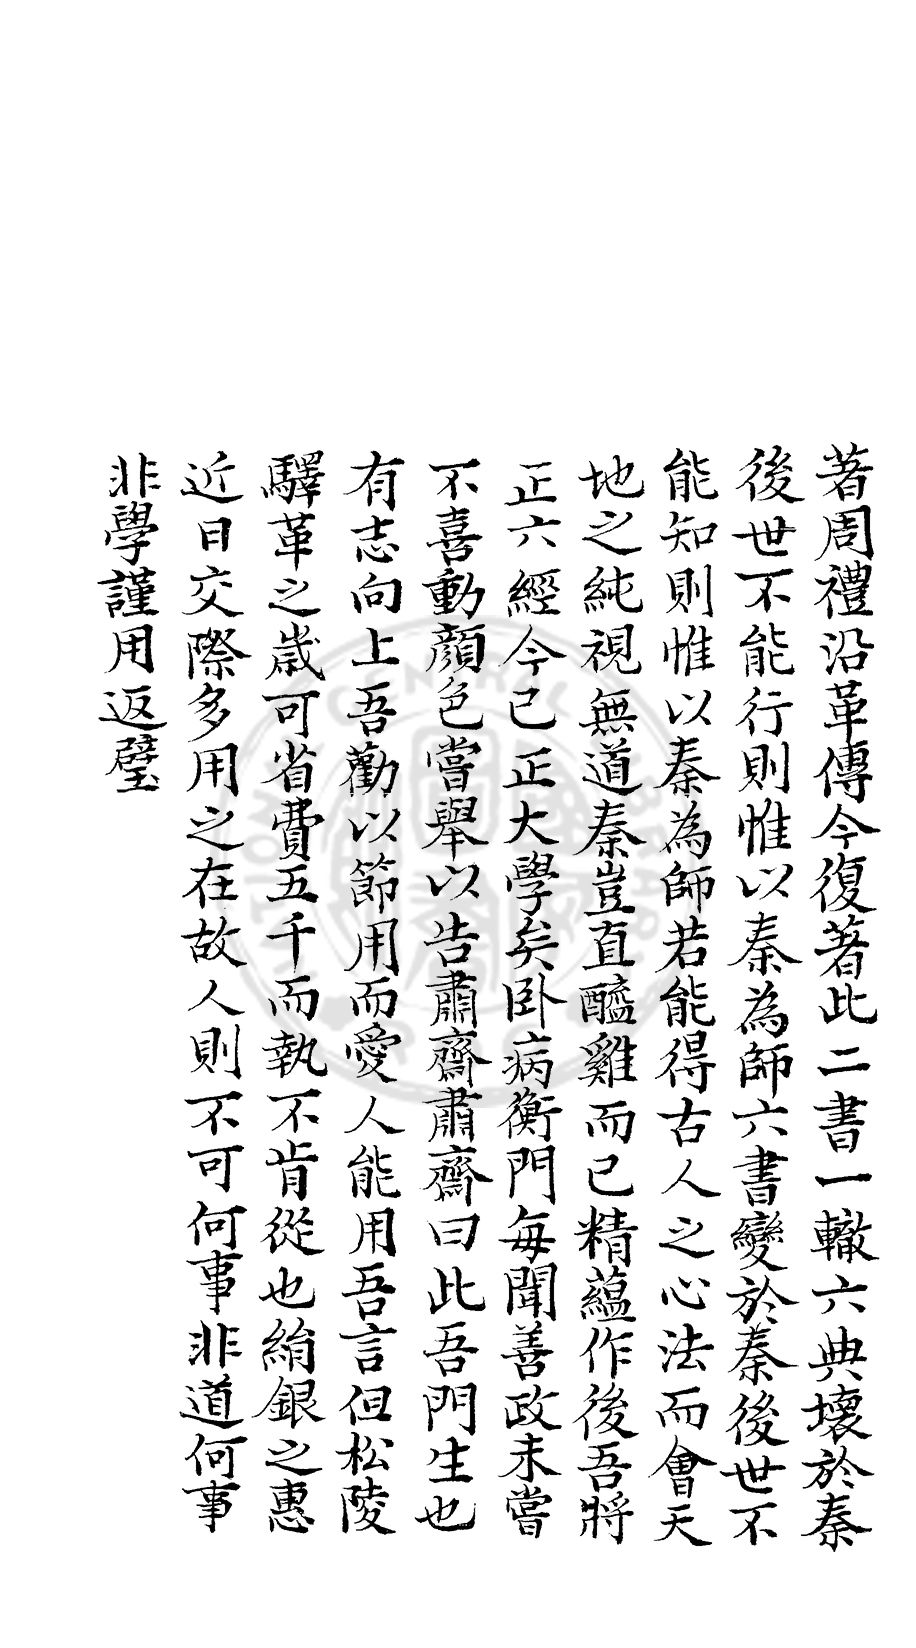 著周禮沿革傳今復著此二書一轍六典壞於秦
後世不能行則惟以秦為師六書變於秦後世不
能知則惟以秦為師若能得古人之心法而會天
地之純視無道秦豈直醯雞而已精蘊作後吾將
正六經今已正大學矣卧病衡門每聞善政未嘗
不喜動顔色嘗舉以告肅齋肅齋曰此吾門生也
有志向上吾勸以節用而愛人能用吾言但松陵
驛革之歲可省費五千而執不肯從也絹銀之惠
近日交際多用之在故人則不可何事非道何事
非學謹用返璧